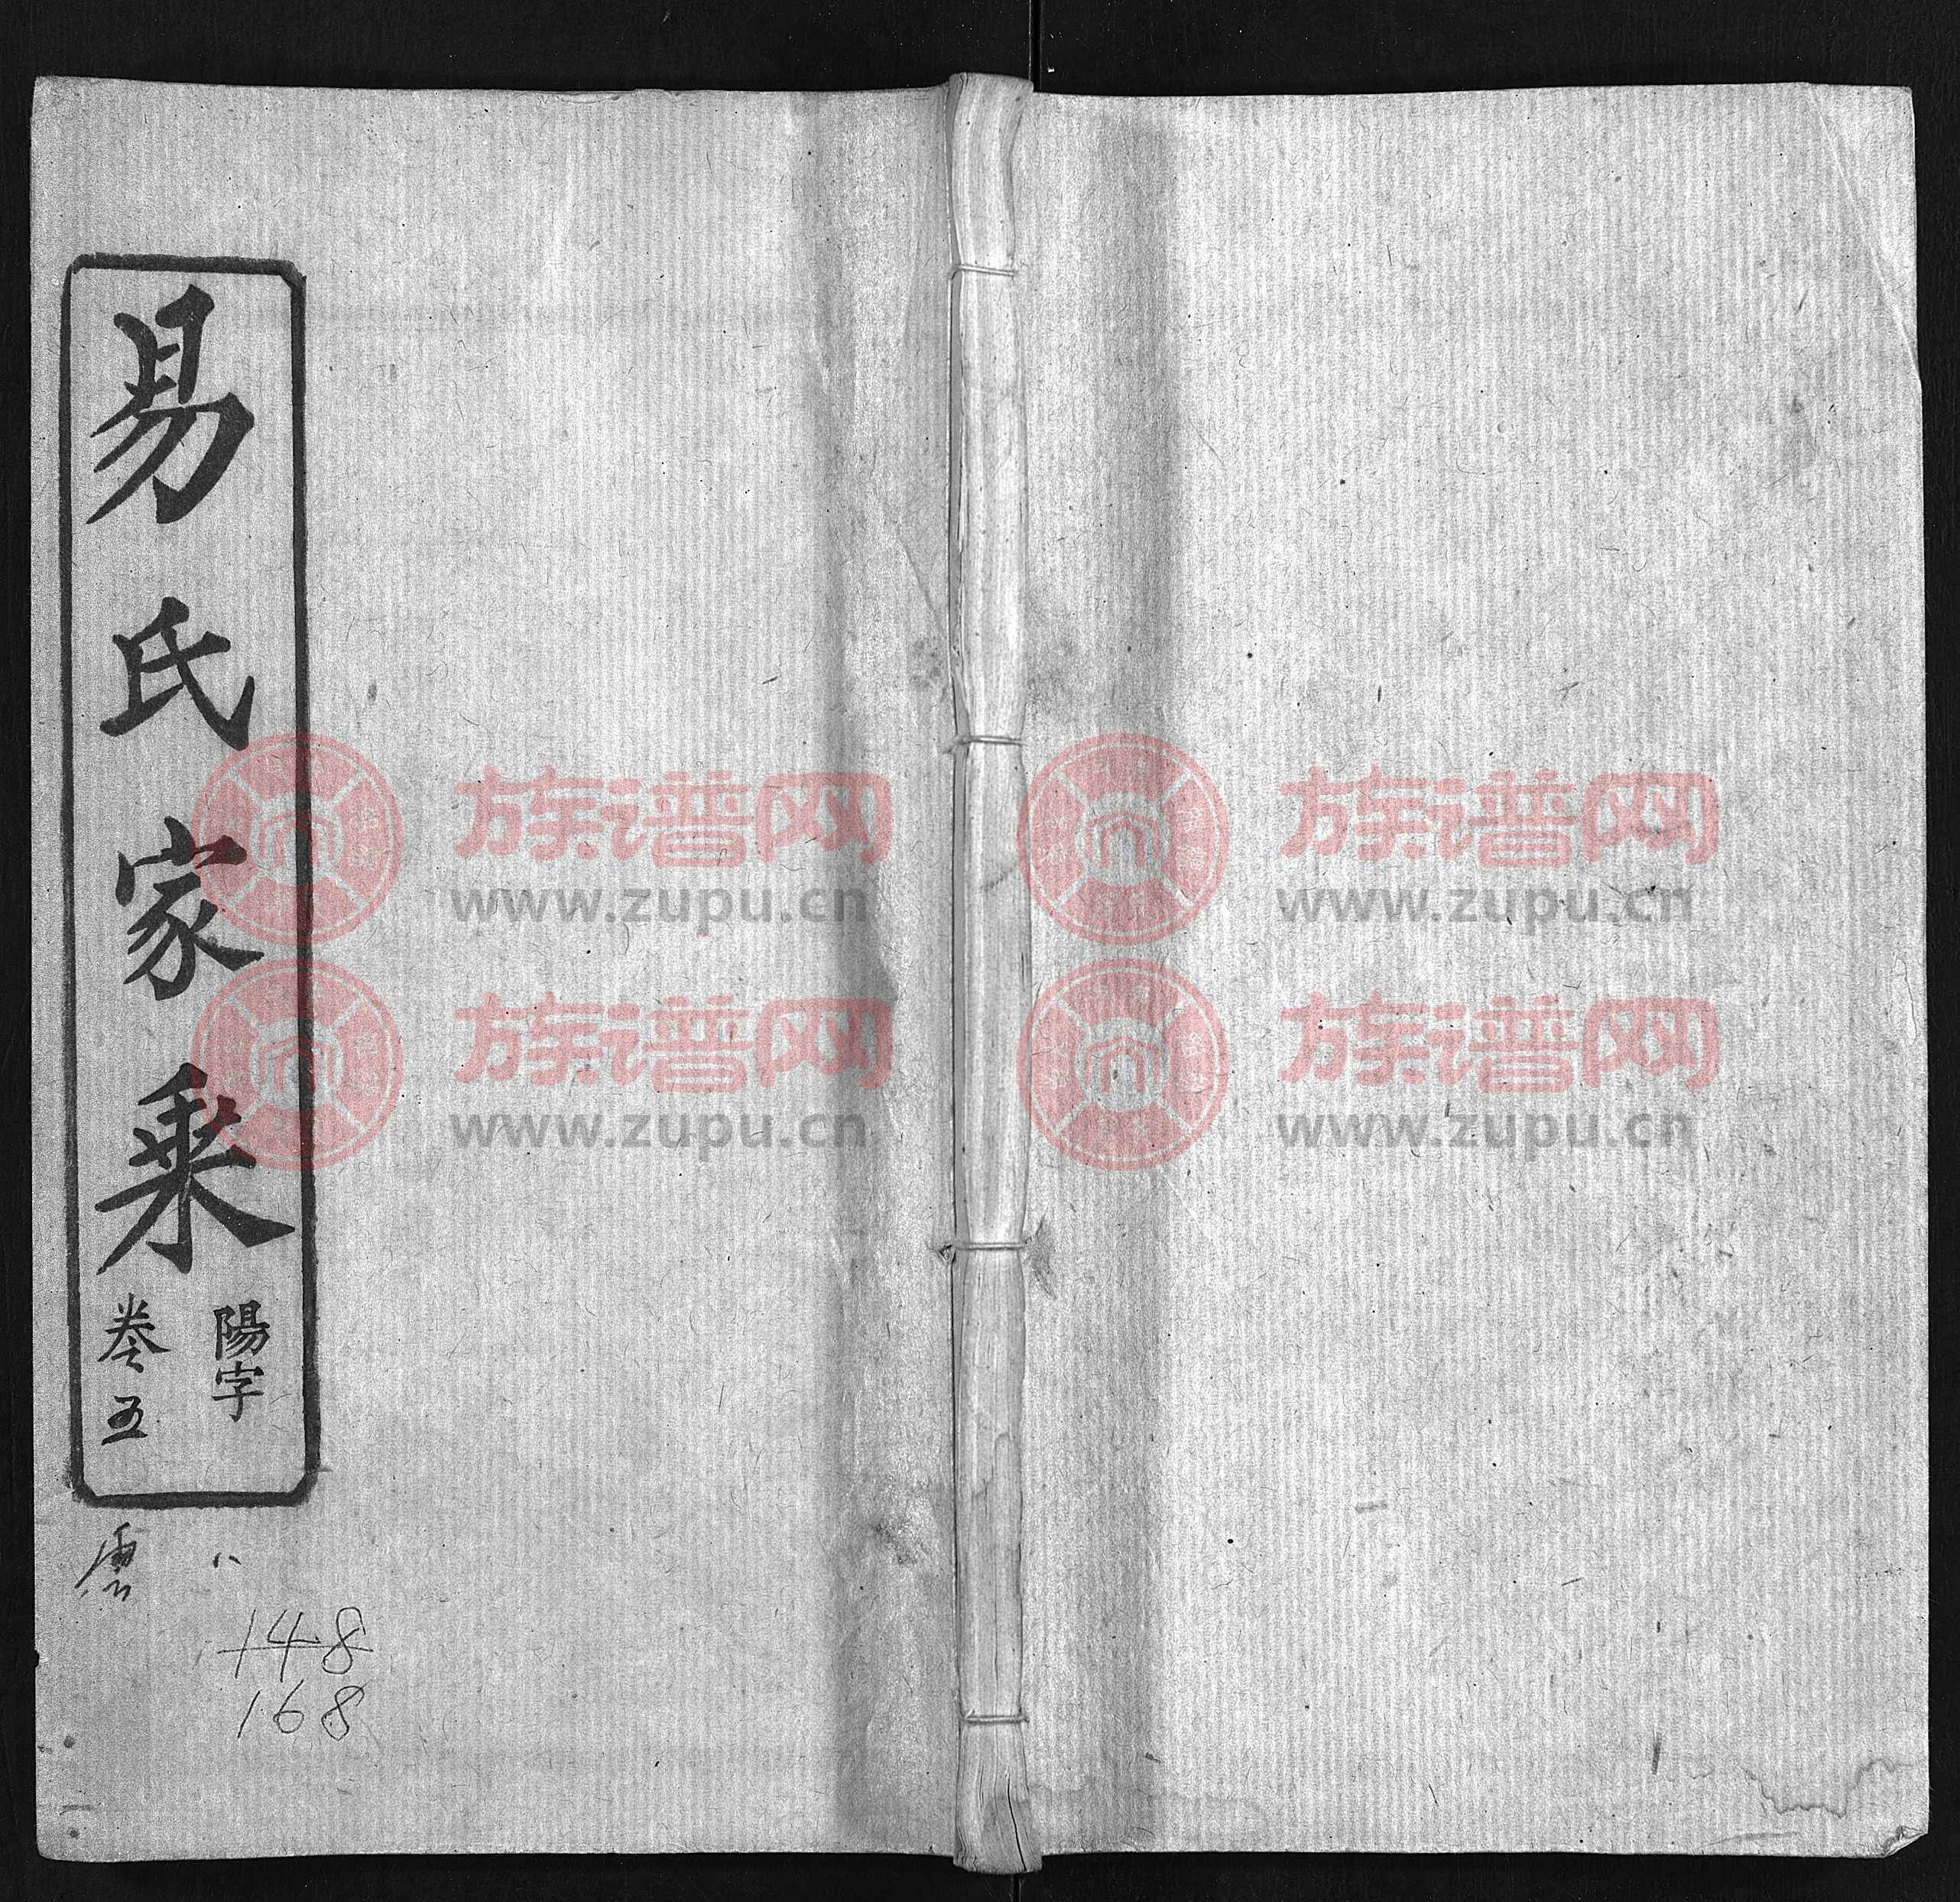 易氏家乘
陽字
卷五
148
168
族谱网
www.zupu.cn
族谱网
www.zupu.cn
族谱网
www.zupu.cn
族谱网
www.zupu.cn